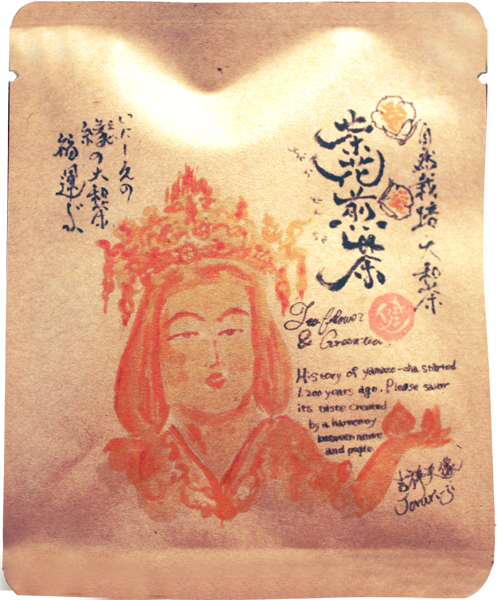 自然栽培 大和茶
茶花煎茶
Tea flower
& Green tea
History of yamato-cha started
1,200 years ago. Please savor
its taste created
by a harmony
between nature
and people.
吉祥天像
Joruri-ji
いにしえの
縁の大和茶
福運ぶ